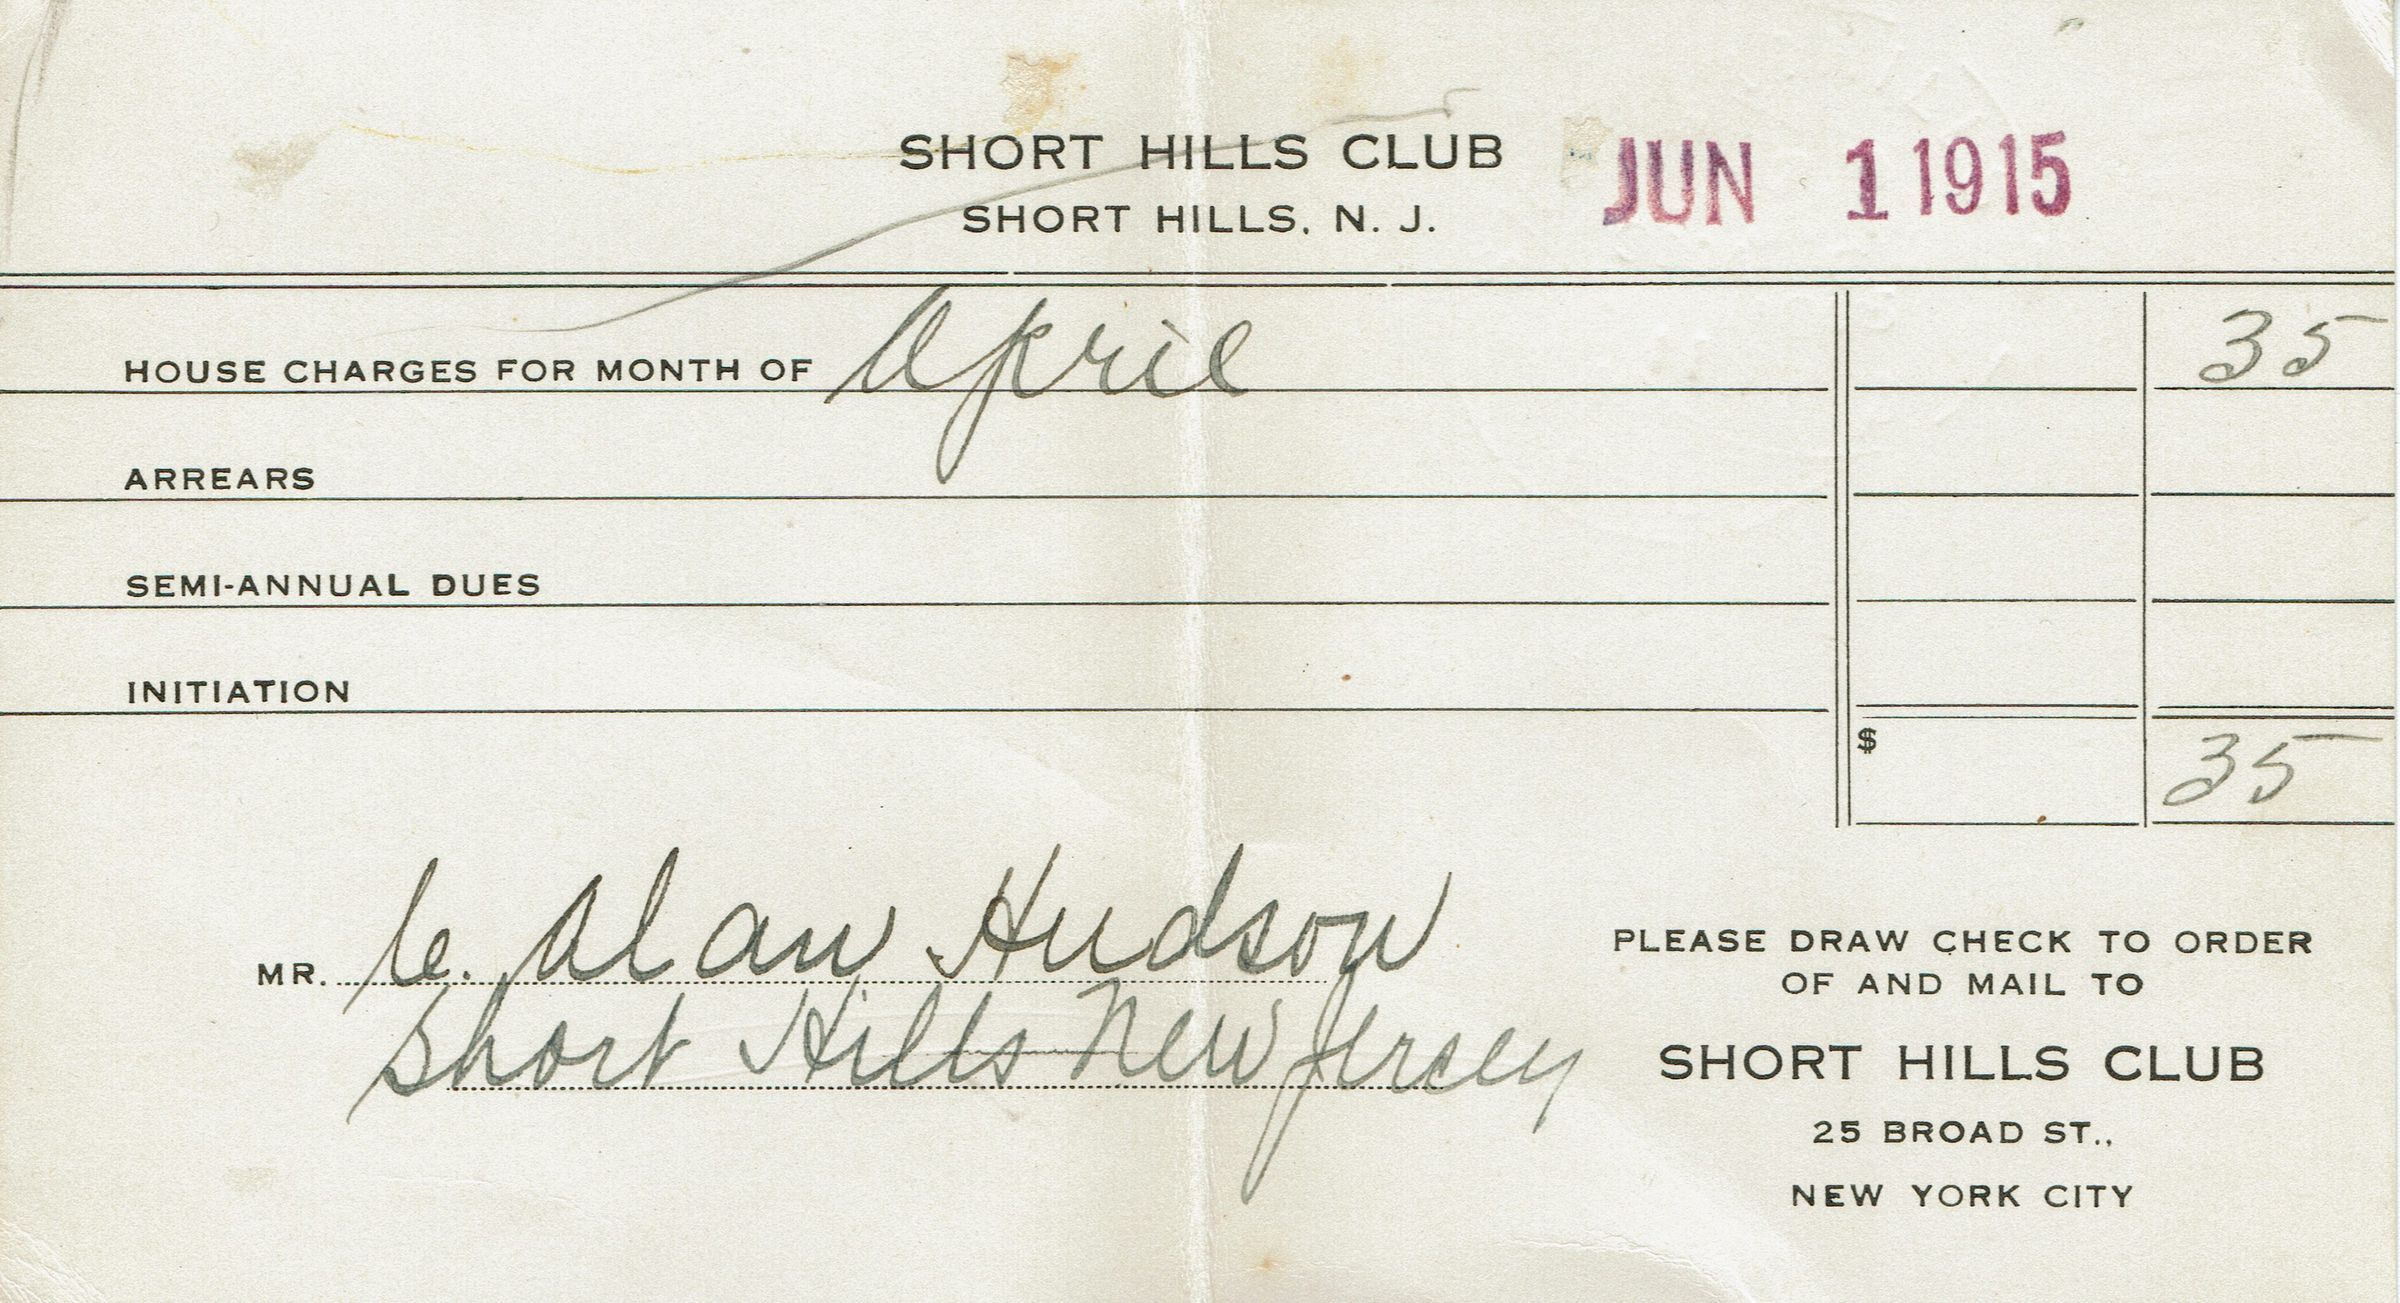 SHORT HILLS CLUB
SHORT HILLS, N. J.
JUN 1 1915
HOUSE CHARGES FOR MONTH OF April 35
ARREARS
SEMI-ANNUAL DUES
INITIATION
$ 35
MR. C. Alan Hudson
Short Hills New Jersey
PLEASE DRAW CHECK TO ORDER
OF AND MAIL TO
SHORT HILLS CLUB
25 BROAD ST.,
NEW YORK CITY